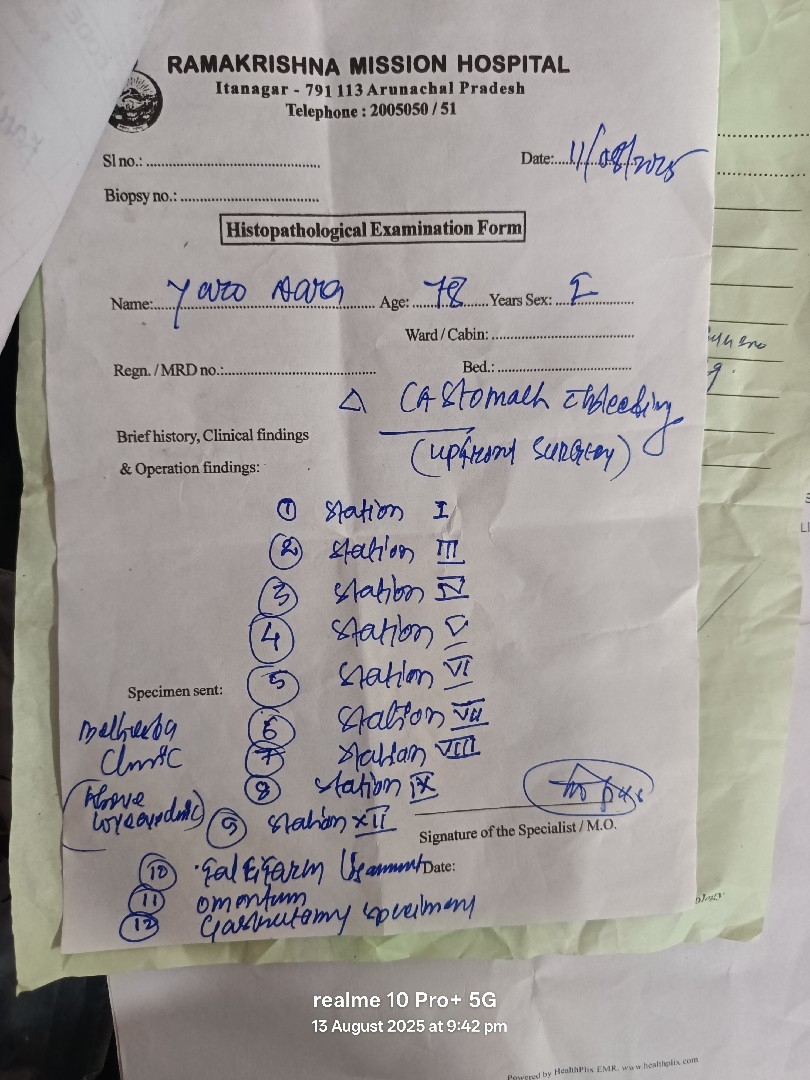 RAMAKRISHNA MISSION HOSPITAL
Itanagar - 791 113 Arunachal Pradesh
Telephone : 2005050 / 51
Sl no.: ........................ Date:....11/08/2025
Biopsy no.: ........................
Histopathological Examination Form
Name:........ Age:....78....Years Sex:....F....
Ward / Cabin: ........................
Regn. / MRD no.:........................ Bed.: ........................
△ CA Stomach bleeding
Brief history, Clinical findings
(upfront surgery)
& Operation findings:
① Station I
② Station III
③ Station IV
④ Station V
⑤ Station VI
Specimen sent:
⑥ Station VII
Clinic
⑦ Station VIII
⑧ Station IX
(Above
⑨ Station XII
Signature of the Specialist / M.O.
⑩ Falciform ligament
Date:
⑪ omentum
⑫ Gastrectomy specimen
realme 10 Pro+ 5G
13 August 2025 at 9:42 pm
Powered by HealthPlix EMR. www.healthplix.com